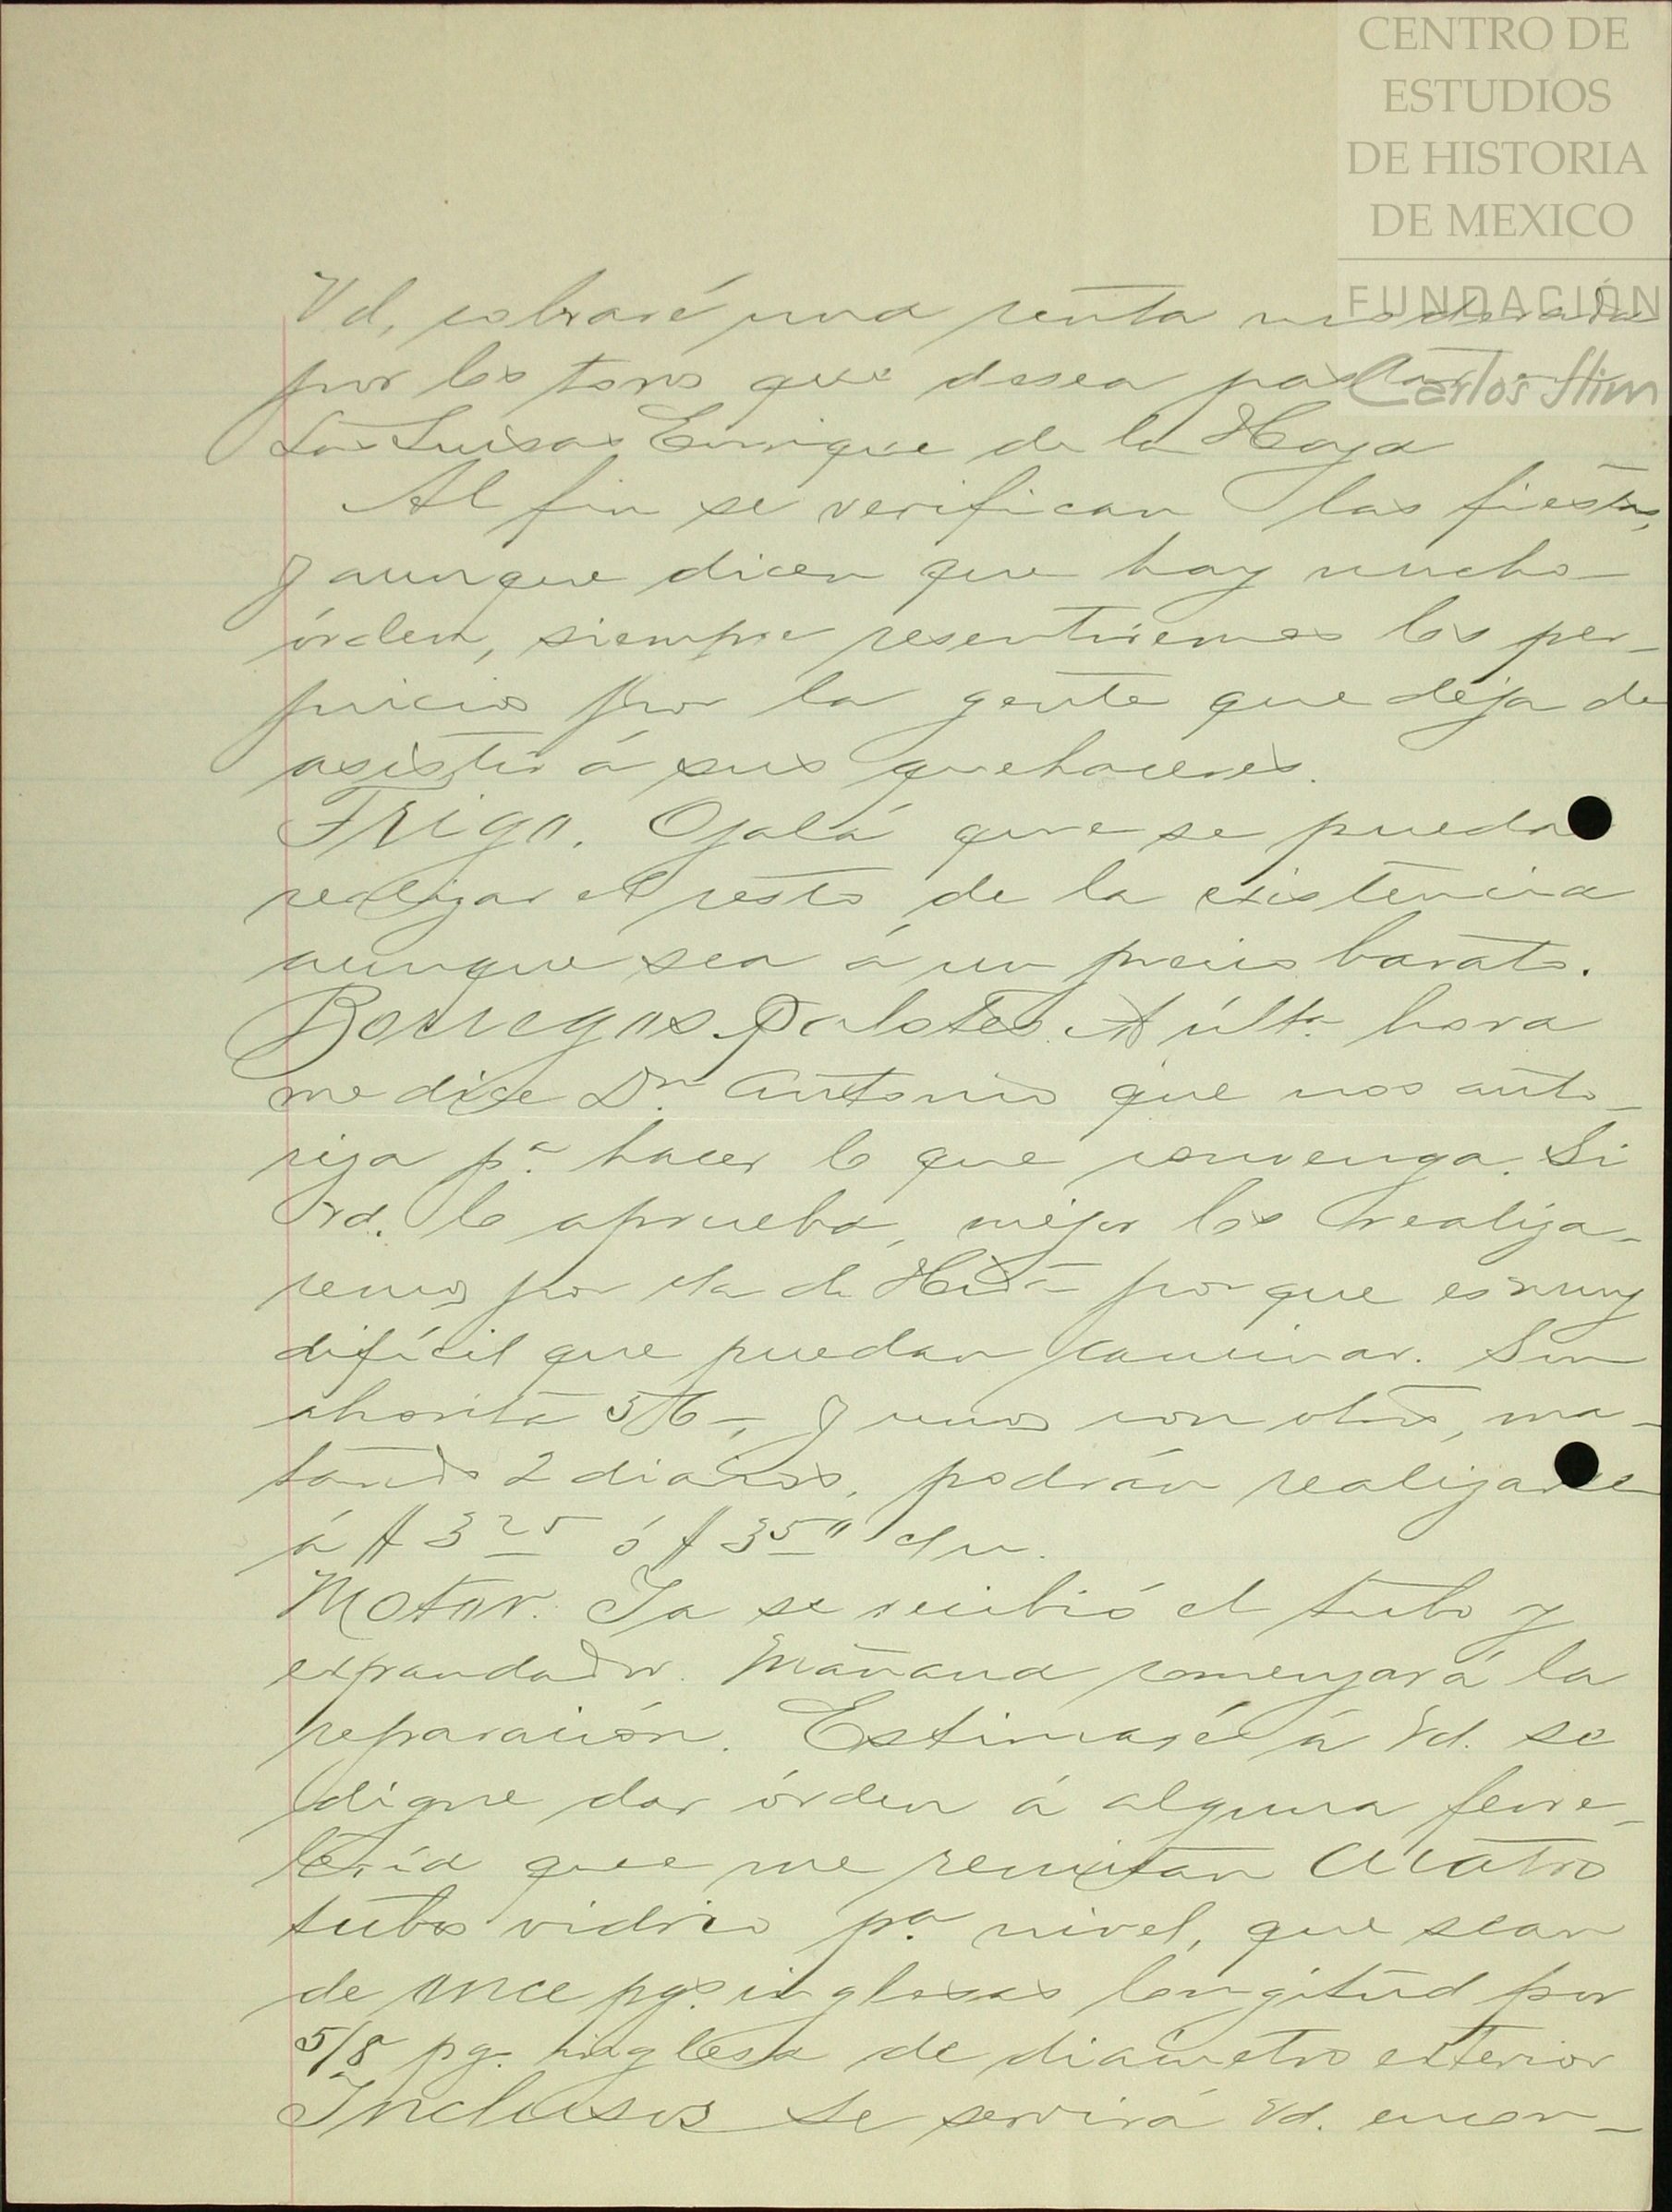 CENTRO DE
ESTUDIOS
DE HISTORIA
DE MEXICO
FUNDACIÓN
Carlos Slim
Vd, cobraré una renta moderada
por los toros que desea pastar en
Las Luisas Enrique de la Hoya
Al fin se verifican las fiestas,
y aunque dicen que hay mucho
órden, siempre resentiremos los per-
juicios por la gente que deja de
asistir á sus quehaceres.
Trigo. Ojalá que se pueda
realizar el resto de la existencia
aunque sea á un precio barato.
Borregos Palotes. A últa. hora
me dice Dn. Antonio que nos auto-
riza pa. hacer lo que convenga. Si
Vd. lo aprueba, mejor los realiza-
remos por cta de Hda. porque es muy
difícil que puedan caminar. Son
ahorita 376-, y unos con otros, ma-
tando 2 diarios, podrán realizarse
á $ 3 25 ó $ 3 50 c/u.
Motor. Ya se recibió el tubo y
expandador. Mañana comenzará la
reparación. Estimaré á Vd. se
digne dar órden á alguna ferre-
tería que me remitan cuatro
tubos vidrio pa. nivel, que sean
de once pgs. inglesas longitud por
5/8 pg. inglesa de diámetro exterior
Inclusos se servirá Vd. encon-